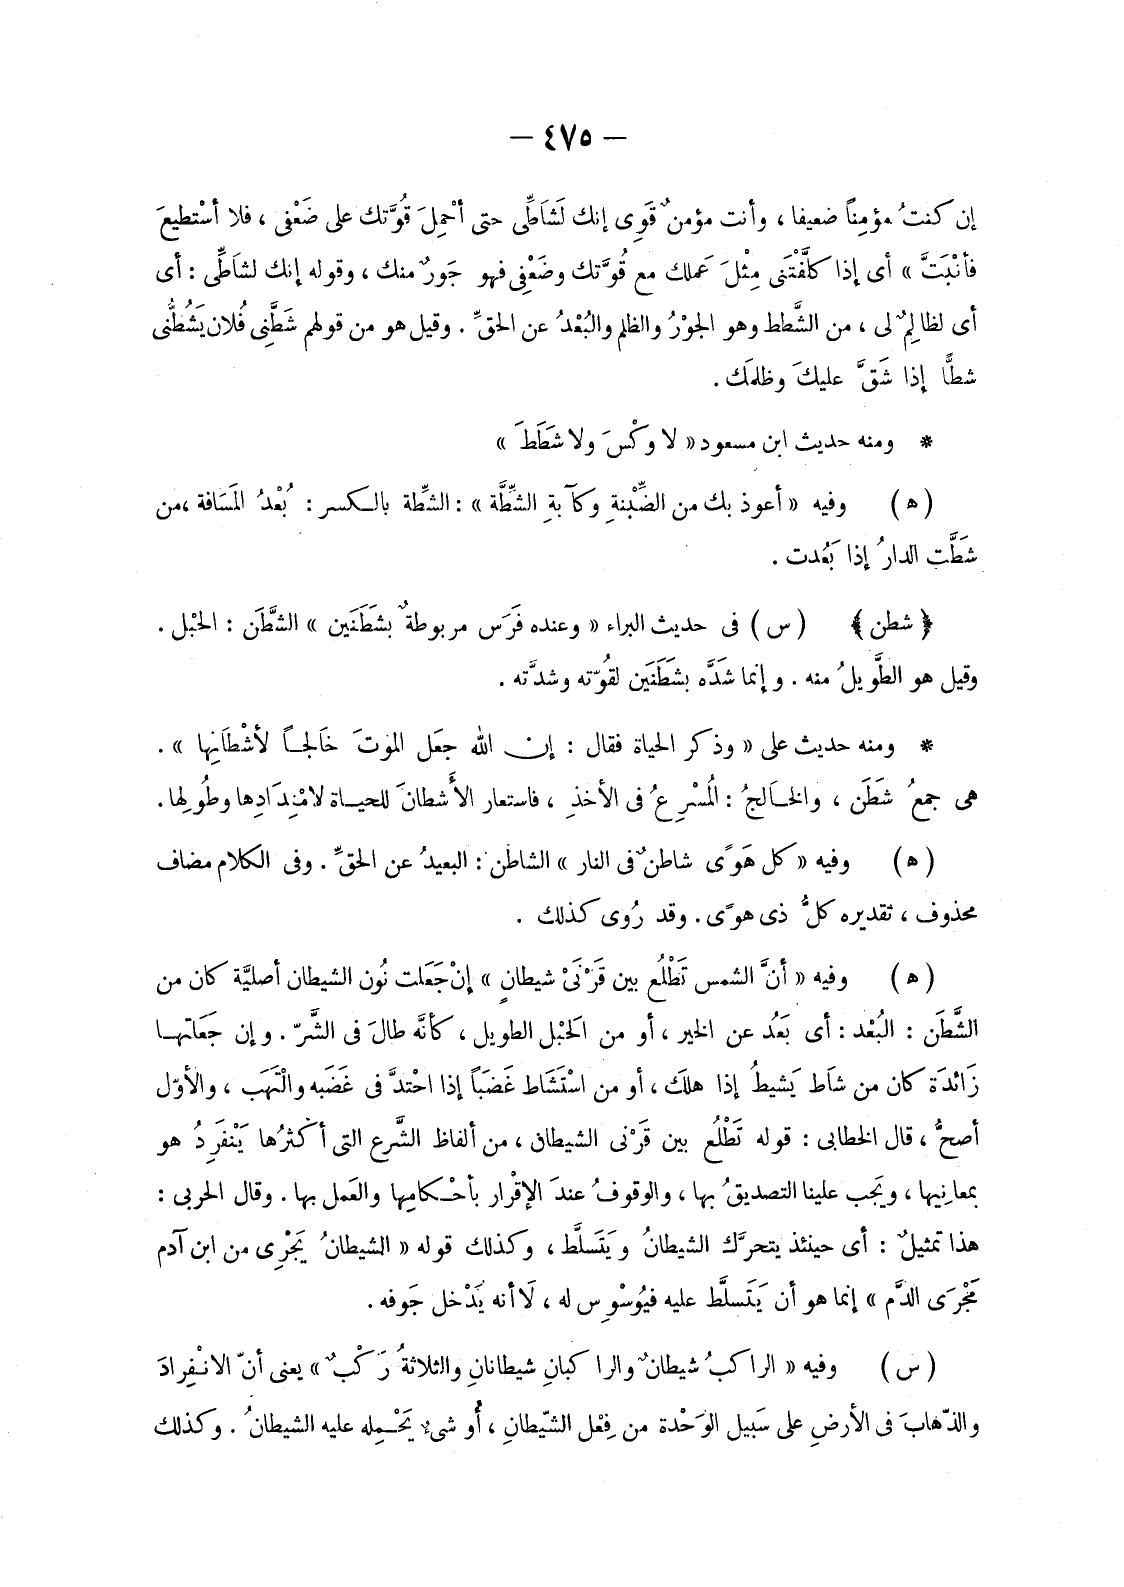 — ٤٧٥ —
إن كنتُ مؤمِناً ضعيفا ، وأنت مؤمنٌ قَوِى إنك لَشَاطِّى حتى أحْمِلَ قُوَّتك على ضَعْفى ، فلا أسْتطيعَ
فأنْبَتَّ » أى إذا كلَّفْتَنى مِثْلَ عَملك مع قُوَّتك وضَعْفِى فهو جَورٌ منك ، وقوله إنك لشاطِّى : أى
أى لظالِمٌ لى ، من الشَّطط وهو الجَوْرُ والظلم والبُعْدُ عن الحقِّ . وقيل هو من قولهم شَطَّنِى فُلان يَشُطُّنى
شطًّا إذا شَقَّ عليكَ وظلمَك .
* ومنه حديث ابن مسعود « لا وكْسَ ولا شَطَطَ »
( ه ) وفيه « أعوذ بك من الضِّبْنةِ وكآبةِ الشِّطَّة » : الشطِّة بالكسر : بُعْدُ المَسَافة ،من
شطَّت الدارُ إذا بَعُدت .
﴿ شطن ﴾ ( س ) فى حديث البراء « وعنده فَرَس مربوطةٌ بشَطَنَين » الشَّطَن : الحَبْل .
وقيل هو الطَّويلُ منه . وإنما شدَّه بشَطَنَين لقُوّته وشدَّته .
* ومنه حديث على « وذكر الحياة فقال : إن الله جعَل الموتَ خَالجـاً لأشْطَانِها » .
هى جمعُ شَطَن ، والخـَالجُ : المُسْرِعُ فى الأخذِ ، فاستعار الأشطانَ للحيـاة لامْتِدَادِها وطُولِها .
( ه ) وفيه « كل هَوًى شاطنٌ فى النار » الشاطن : البعيدُ عن الحقِّ . وفى الكلام مضاف
محذوف ، تقديره كلُّ ذى هوًى . وقد رُوى كذلك .
( ه ) وفيه « أنَّ الشمس تَطْلُع بين قَرْنَىْ شيطانٍ » إنْ جَعَلت نُون الشيطان أصليَّة كان من
الشَّطَن : البُعْد : أى بَعُد عن الخير ، أو من الحَبْل الطويل ، كأنَّه طالَ فى الشَّرّ . وإن جَعَلتهـا
زَائدَة كان من شاَط يَشيطُ إذا هلَك ، أو من اسْتَشَاط غَضَباً إذا احْتدَّ فى غَضَبه والْتَهَب ، والأوّل
أصحُّ ، قال الخطابى : قوله تَطْلُع بين قَرْنى الشيطان ، من ألفاظ الشَّرع التى أكثرُها يَنْفَرِدُ هو
بمعانِيها ، ويَجب علينا التصديقُ بها ، والوقوفُ عندَ الإقْرار بأحْكامِها والعَمل بها . وقال الحربى :
هذا تمثيلٌ : أى حينئذ يتحرَّك الشيطانُ ويَتَسلَّط ، وكذلك قوله « الشيطانُ يَجْرِى من ابن آدم
مَجْرَى الدَّم » إنما هو أن يَتَسلَّط عليه فيُوسْوِس له ، لَا أنه يَدْخل جَوفه .
( س ) وفيه « الراكبُ شيطانٌ والراكبانِ شيطانانِ والثلاثةُ رَكْبٌ » يعنى أنّ الانْفِرادَ
والذّهابَ فى الأرضِ على سَبيل الوَحْدة من فِعْل الشّيطانِ ، أو شىءٌ يَحْمِله عليه الشيطانُ . وكذلك